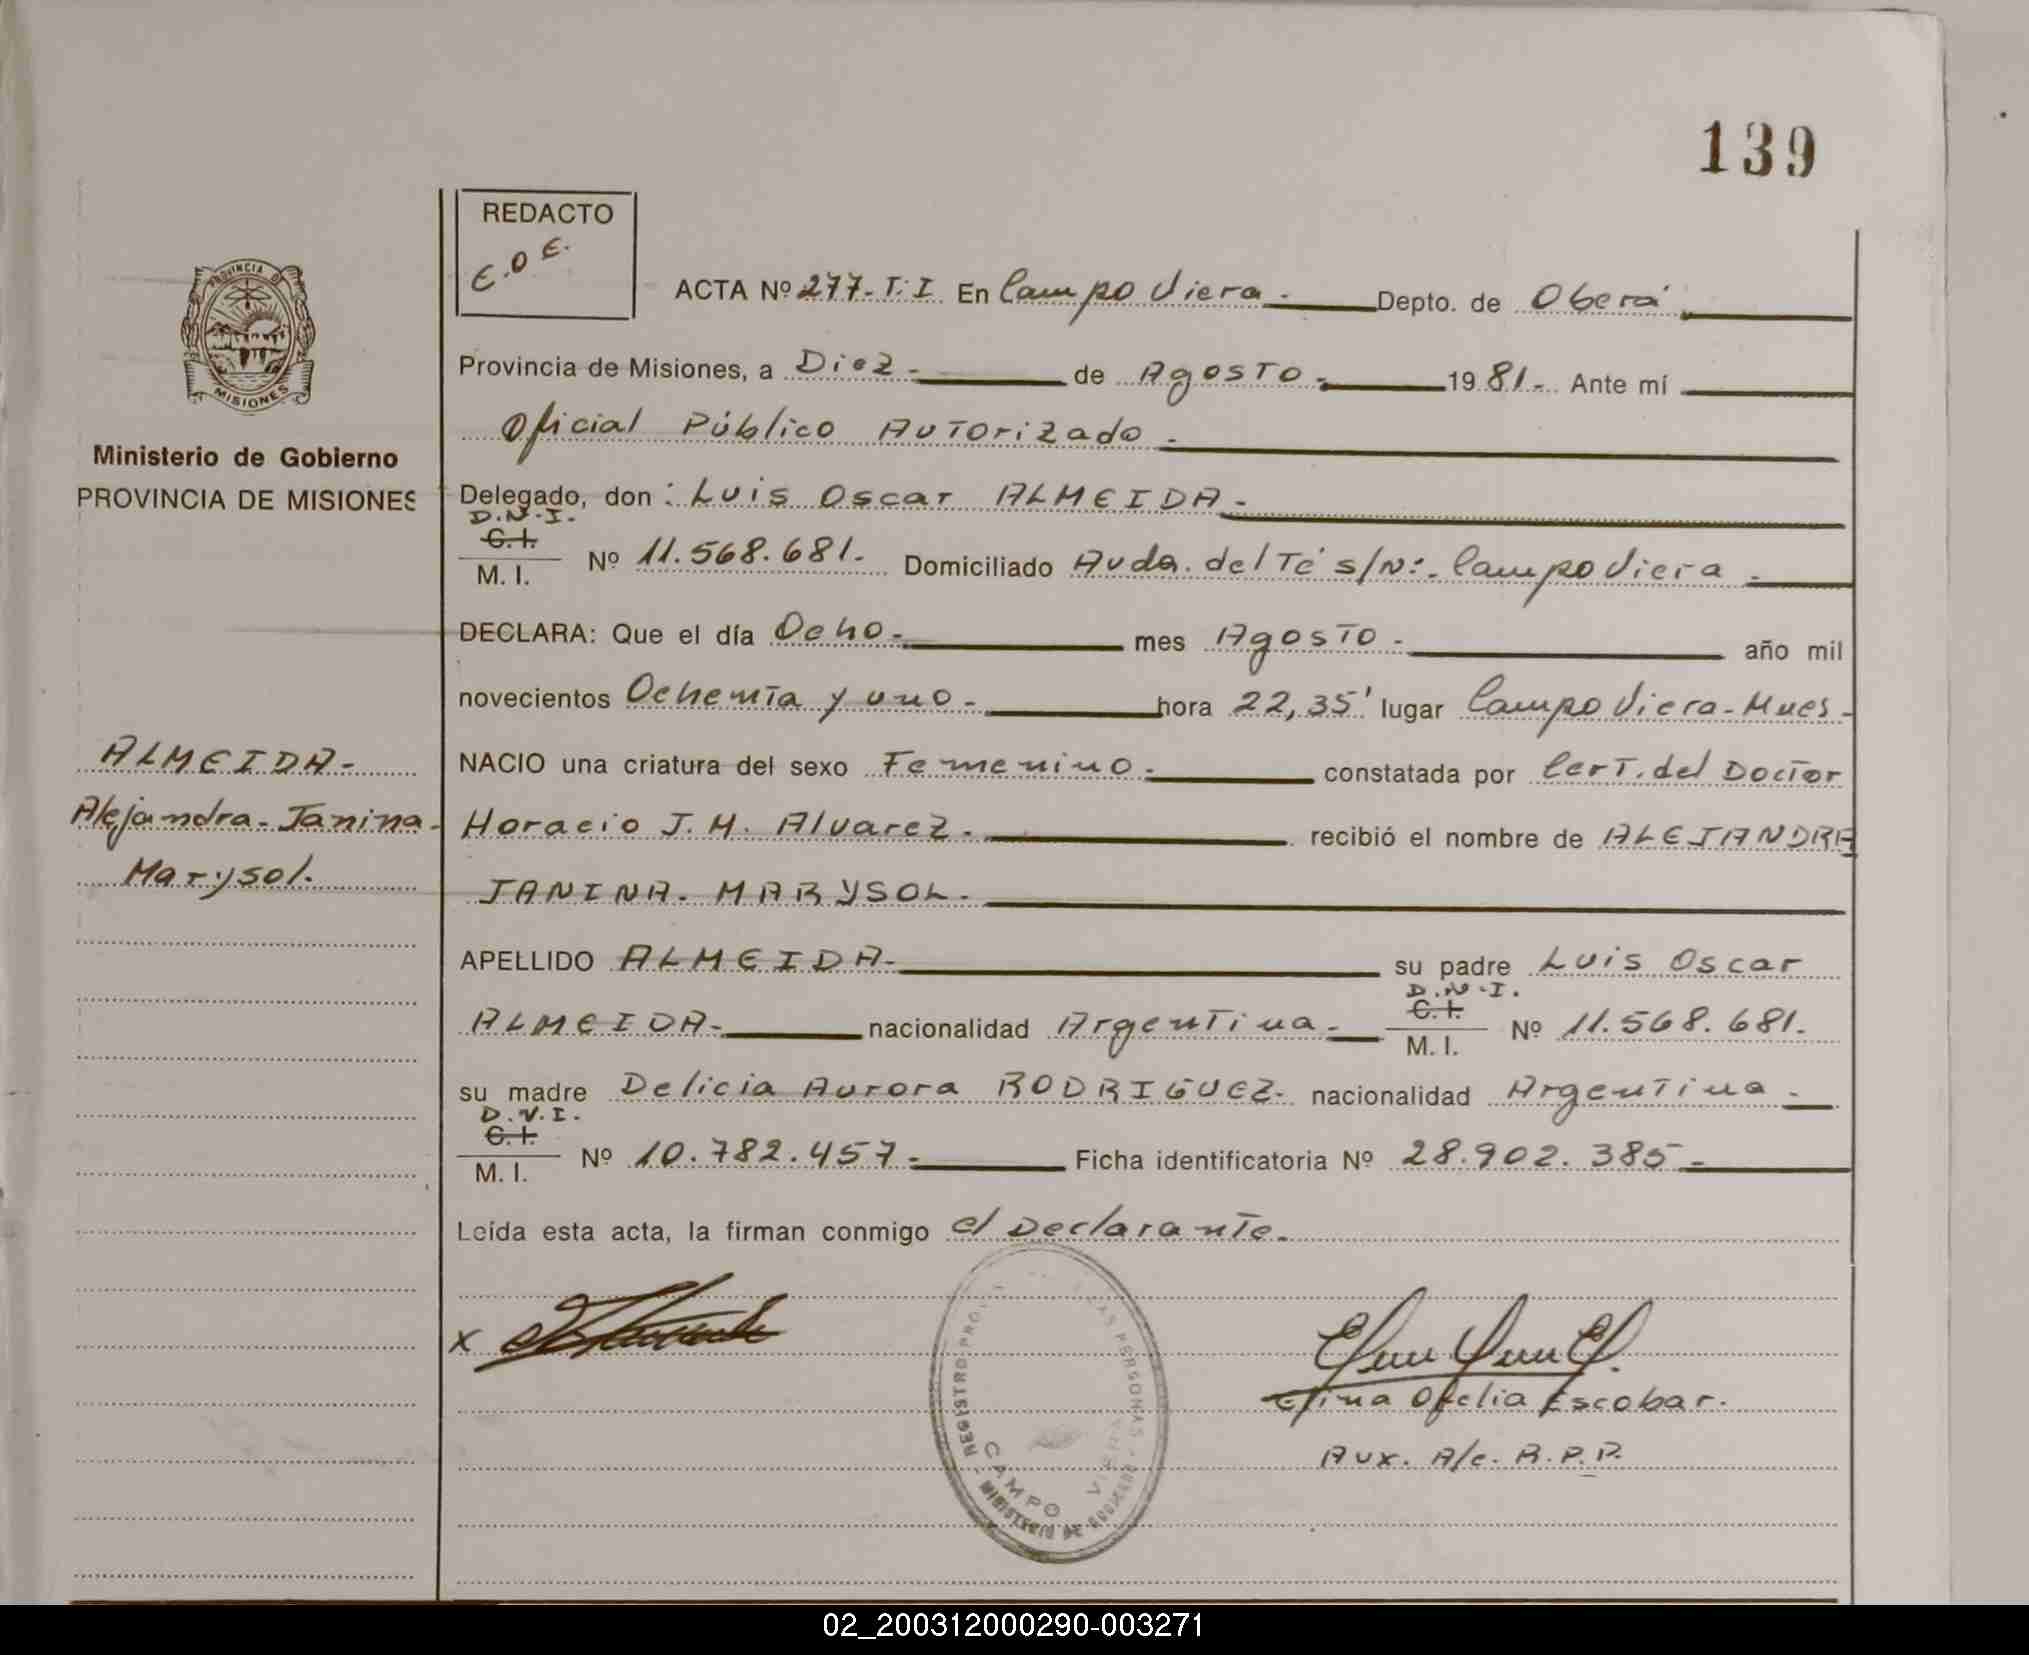 139
REDACTO
E.O.E.
ACTA Nº 277-T.I En Campo Viera.- Depto. de Oberá
Provincia de Misiones, a Diez.- de Agosto.- 19 81.- Ante mí
Oficial Público Autorizado.-
Ministerio de Gobierno
PROVINCIA DE MISIONES
Delegado, don: Luis Oscar ALMEIDA.-
D.N.I.
C.I.
M. I. Nº 11.568.681.- Domiciliado Avda. del Té s/Nº.- Campo Viera.-
DECLARA: Que el día Ocho.- mes Agosto.- año mil
novecientos Ochenta y uno.- hora 22,35' lugar Campo Viera-Mnes.-
ALMEIDA-
Alejandra-Janina-
Marysol.
NACIO una criatura del sexo Femenino.- constatada por Cert. del Doctor
Horacio J. M. Alvarez.- recibió el nombre de ALEJANDRA
JANINA. MARYSOL.-
APELLIDO ALMEIDA.- su padre Luis Oscar
ALMEIDA.- nacionalidad Argentina.- D.N.I. C.I. M. I. Nº 11.568.681.
su madre Delicia Aurora RODRIGUEZ.- nacionalidad Argentina.-
D.N.I.
C.I.
M. I. Nº 10.782.457.- Ficha identificatoria Nº 28.902.385.-
Leída esta acta, la firman conmigo el Declarante.
x
Elina Ofelia Escobar.
Aux. A/c. R.P.P.
REGISTRO PROV PERSONAS - MINISTERIO DE GOBIERNO
CAMPO VIERA
PROVINCIA DE
MISIONES
02_200312000290-003271